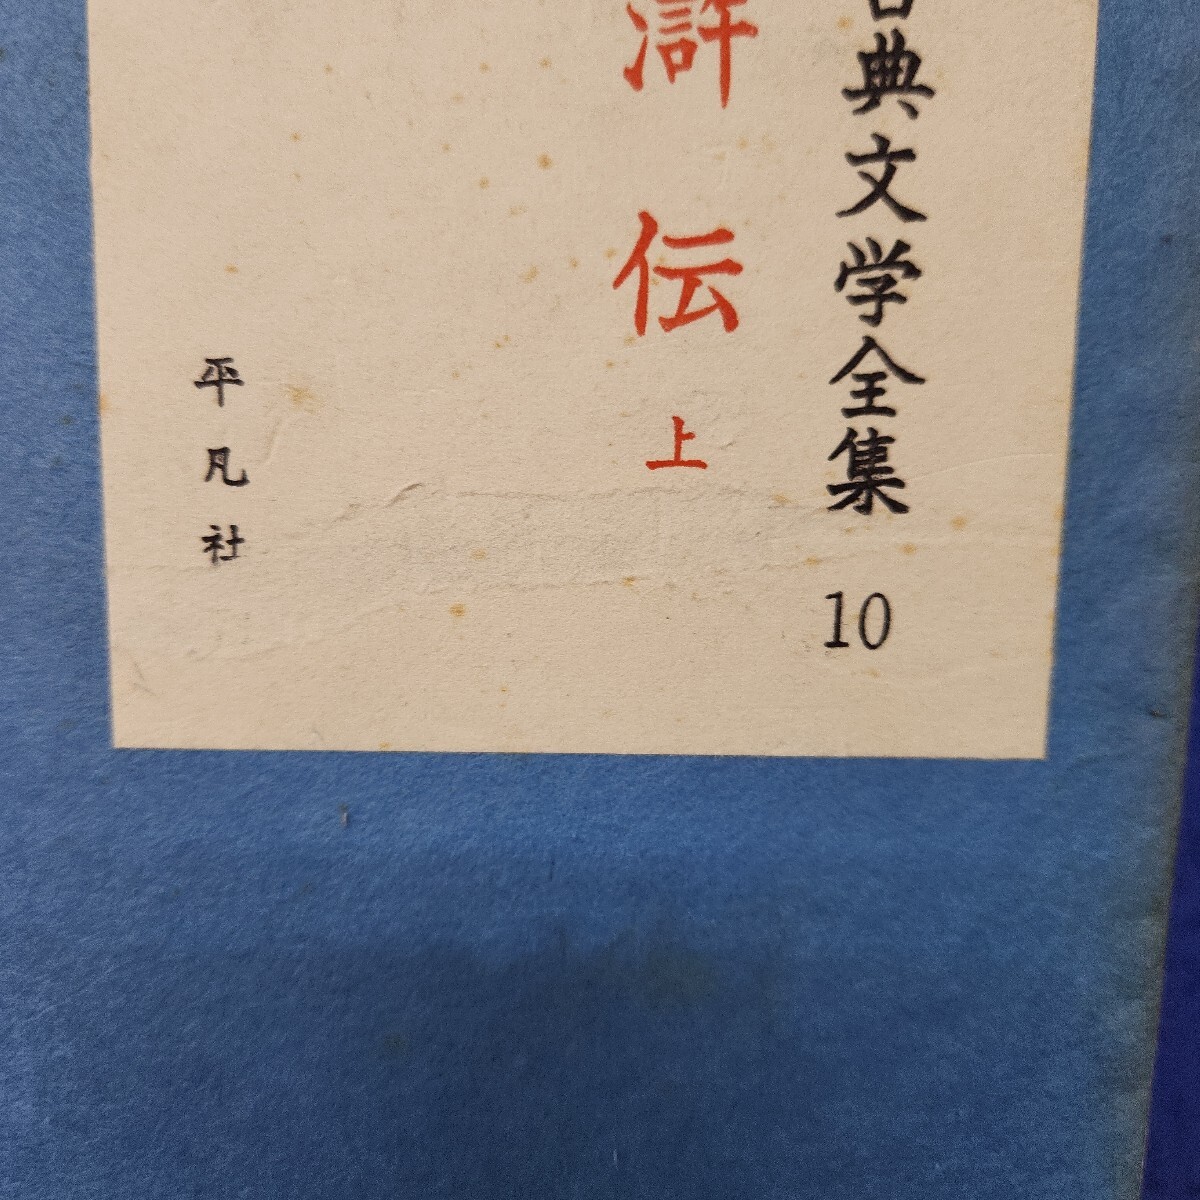 古典文学全集 10
滸伝 上
平凡社